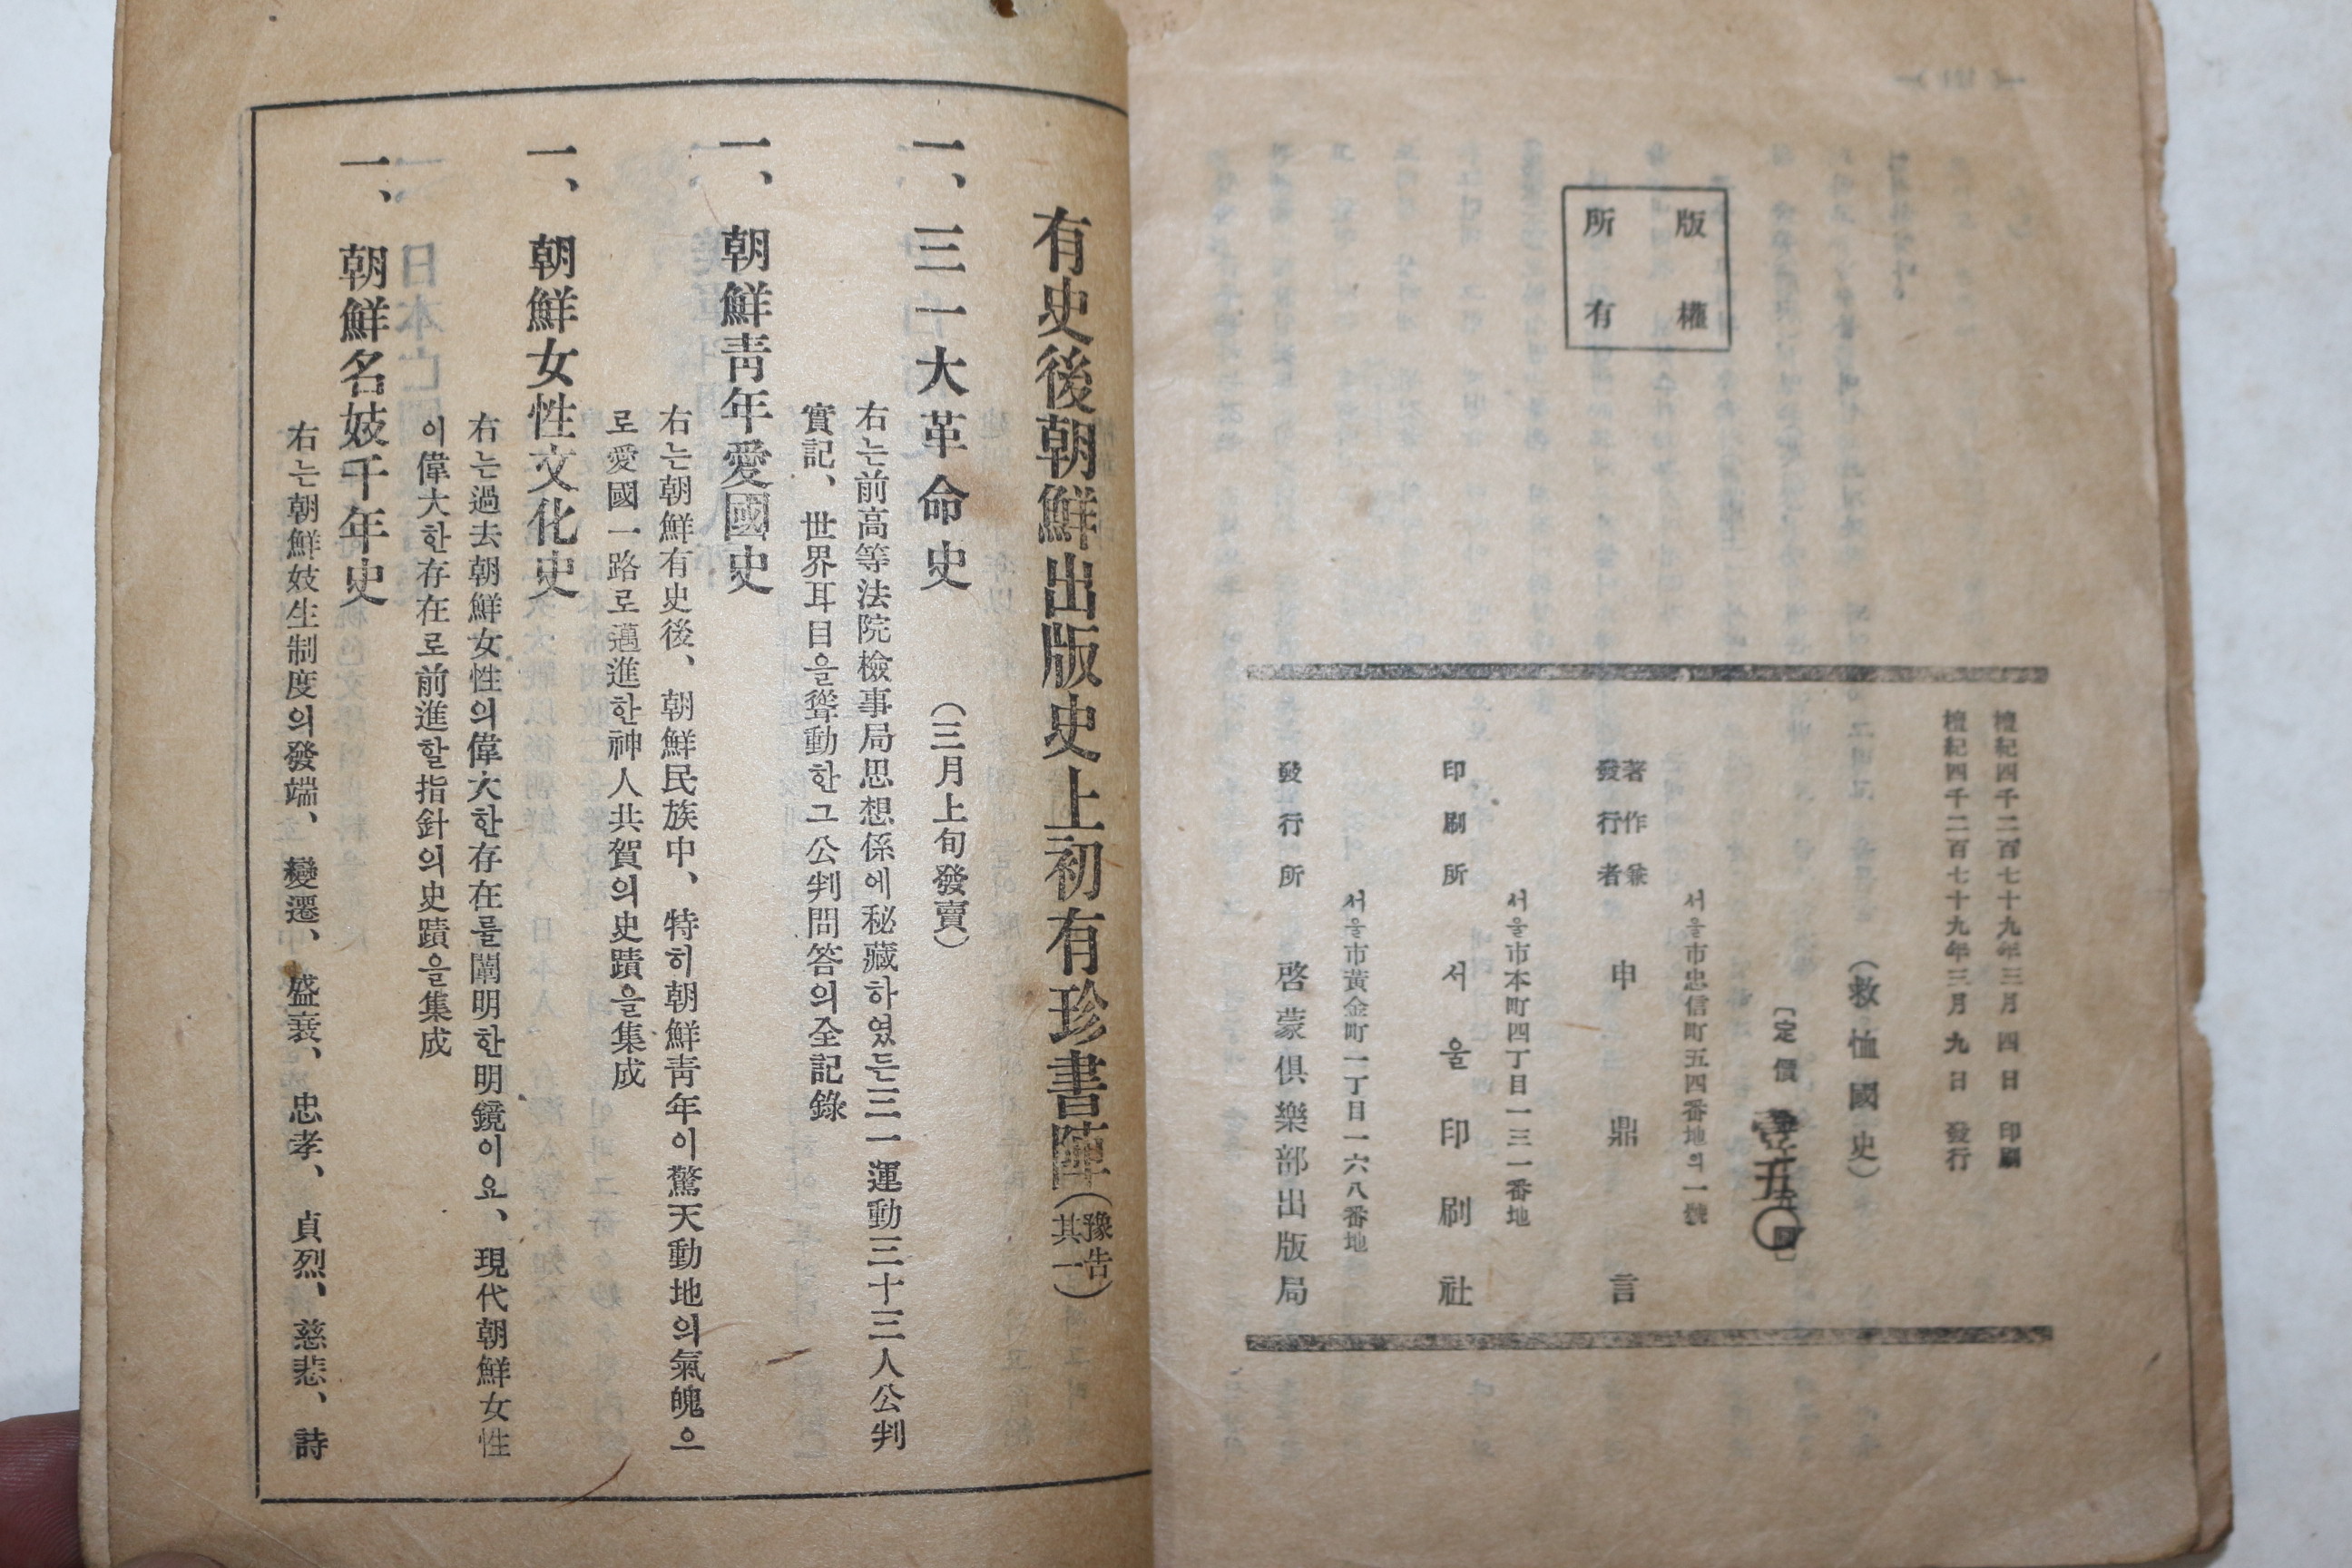 版權
所有
檀紀四千二百七十九年三月四日 印刷
檀紀四千二百七十九年三月九日 發行
(救恤國史)
[定價
서울市忠信町五四番地의一號
著作兼
發行者 申鼎言
서울市本町四丁目一三一番地
印刷所 서울印刷社
서울市黃金町一丁目一六八番地
發行所 啓蒙俱樂部出版局
有史後朝鮮出版史上初有珍書陣(豫告其一)
一、三一大革命史 (三月上旬發賣)
右는前高等法院檢事局思想係에秘藏하였든三一運動三十三人公判
實記、世界耳目을聳動한그公判問答의全記錄
一、朝鮮靑年愛國史
右는朝鮮有史後、朝鮮民族中、特히朝鮮靑年이驚天動地의氣魄으
로愛國一路로邁進한神人共賀의史蹟을集成
一、朝鮮女性文化史
右는過去朝鮮女性의偉大한存在를闡明한明鏡이요、現代朝鮮女性
이偉大한存在로前進할指針의史蹟을集成
一、朝鮮名妓千年史
右는朝鮮妓生制度의發端、變遷、盛衰、忠孝、貞烈、慈悲、詩